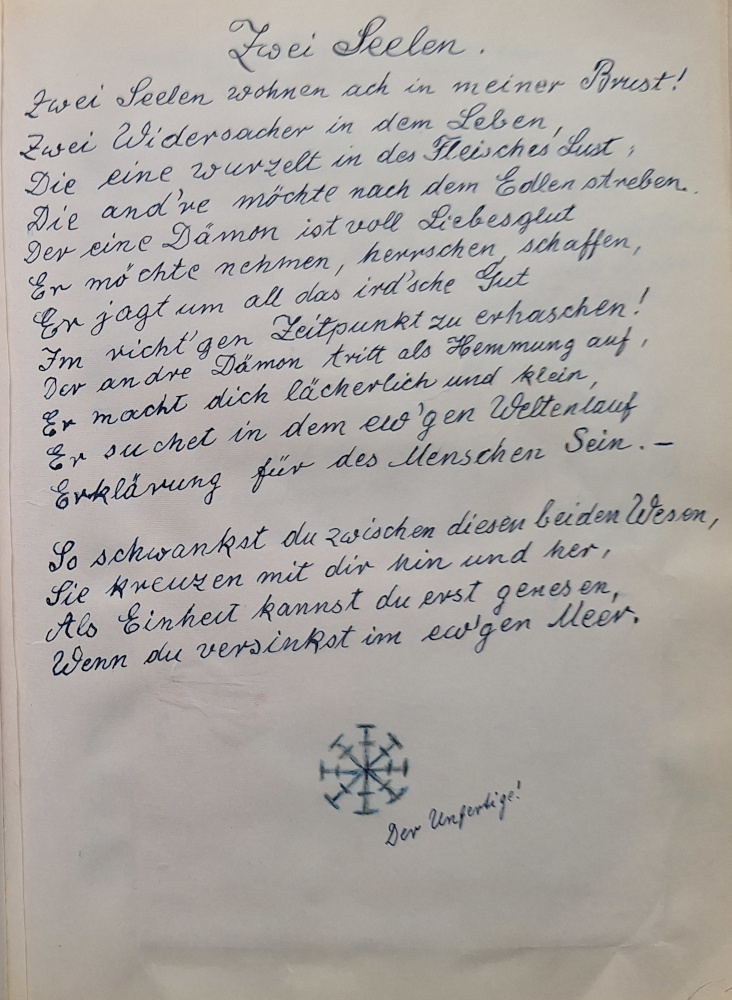 Zwei Seelen.
Zwei Seelen wohnen ach in meiner Brust!
Zwei Widersacher in dem Leben,
Die eine wurzelt in des Fleisches Lust,
Die and're möchte nach dem Edlen streben.
Der eine Dämon ist voll Liebesglut
Er möchte nehmen, herrschen, schaffen,
Er jagt um all das ird'sche Gut
Im richt'gen Zeitpunkt zu erhaschen!
Der andre Dämon tritt als Hemmung auf,
Er macht dich lächerlich und klein,
Er suchet in dem ew'gen Weltenlauf
Erklärung für des Menschen Sein. –
So schwankst du zwischen diesen beiden Wesen,
Sie kreuzen mit dir hin und her,
Als Einheit kannst du erst genesen,
Wenn du versinkst im ew'gen Meer.
Der Unfertige!